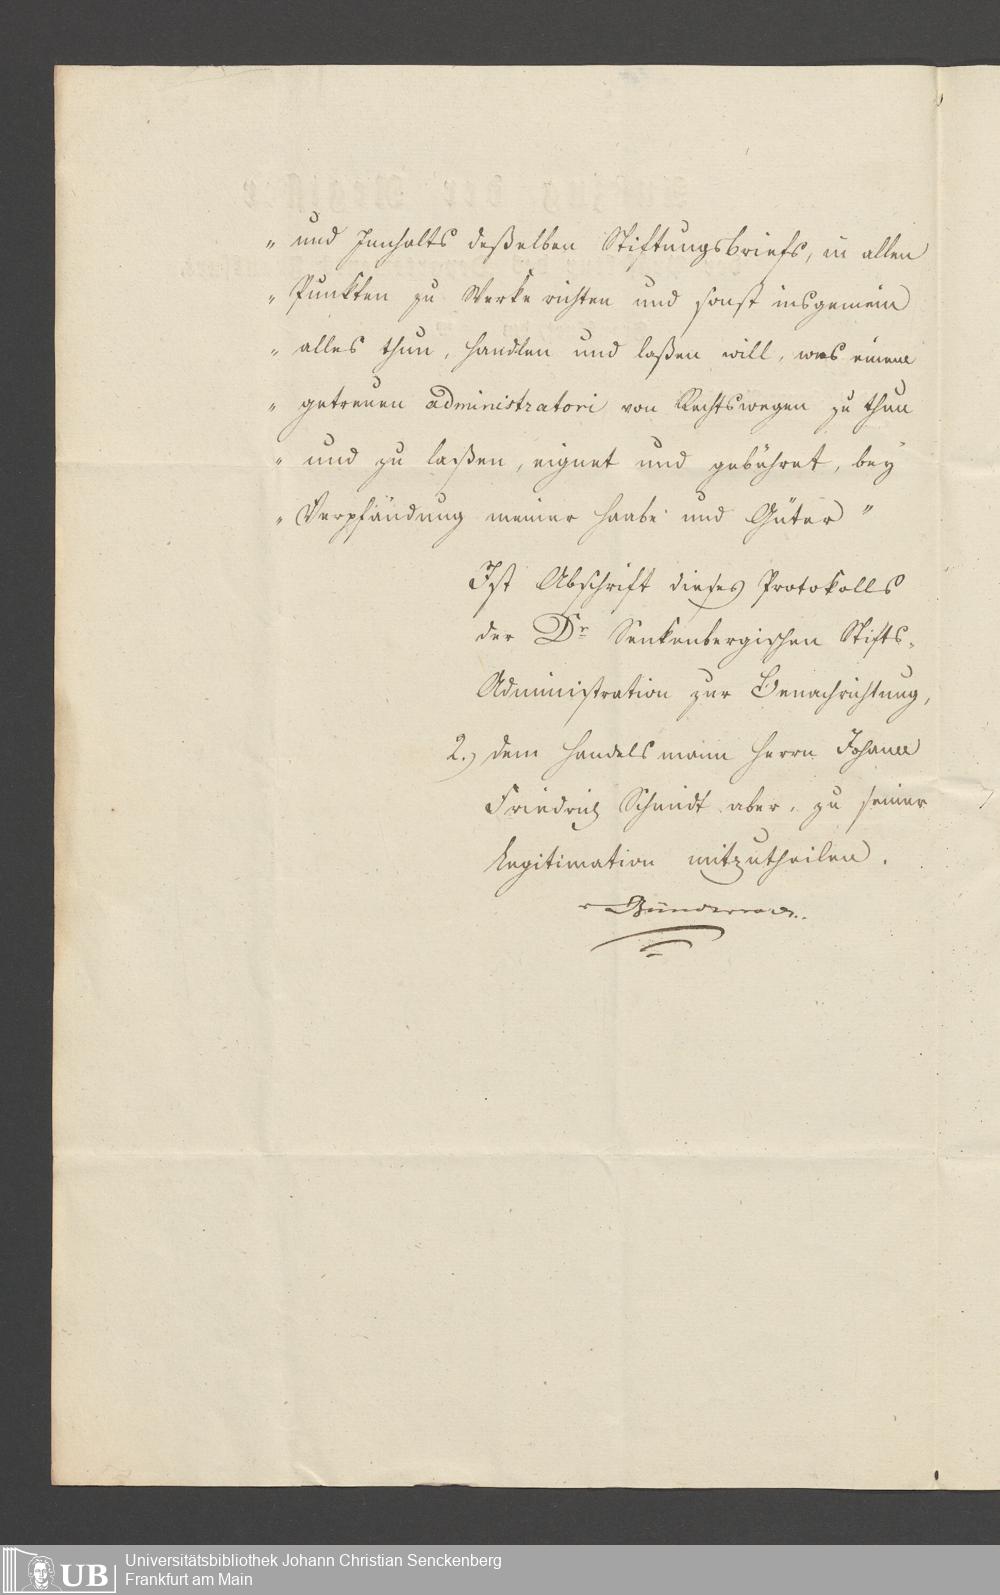 „ und Innhalts deßelben Stiftungsbriefs, in allen
„ Punkten zu Werke richten und sonst insgemein
„ alles thun, handlen und laßen will, was einem
„ getreuen administratori von Rechtswegen zu thun
„ und zu laßen, eignet und gebühret, bey
„ Verpfändung meiner Haabe und Güter "
Ist Abschrift dieses Protokolls
der Dr Senkenbergischen Stifts-
Administration zur Benachrichtung,
2.) dem Handelsmann Herrn Johann
Friedrich Schmidt aber, zu seiner
Legitimation mitzutheilen.
Günderrode.
Universitätsbibliothek Johann Christian Senckenberg
UB Frankfurt am Main